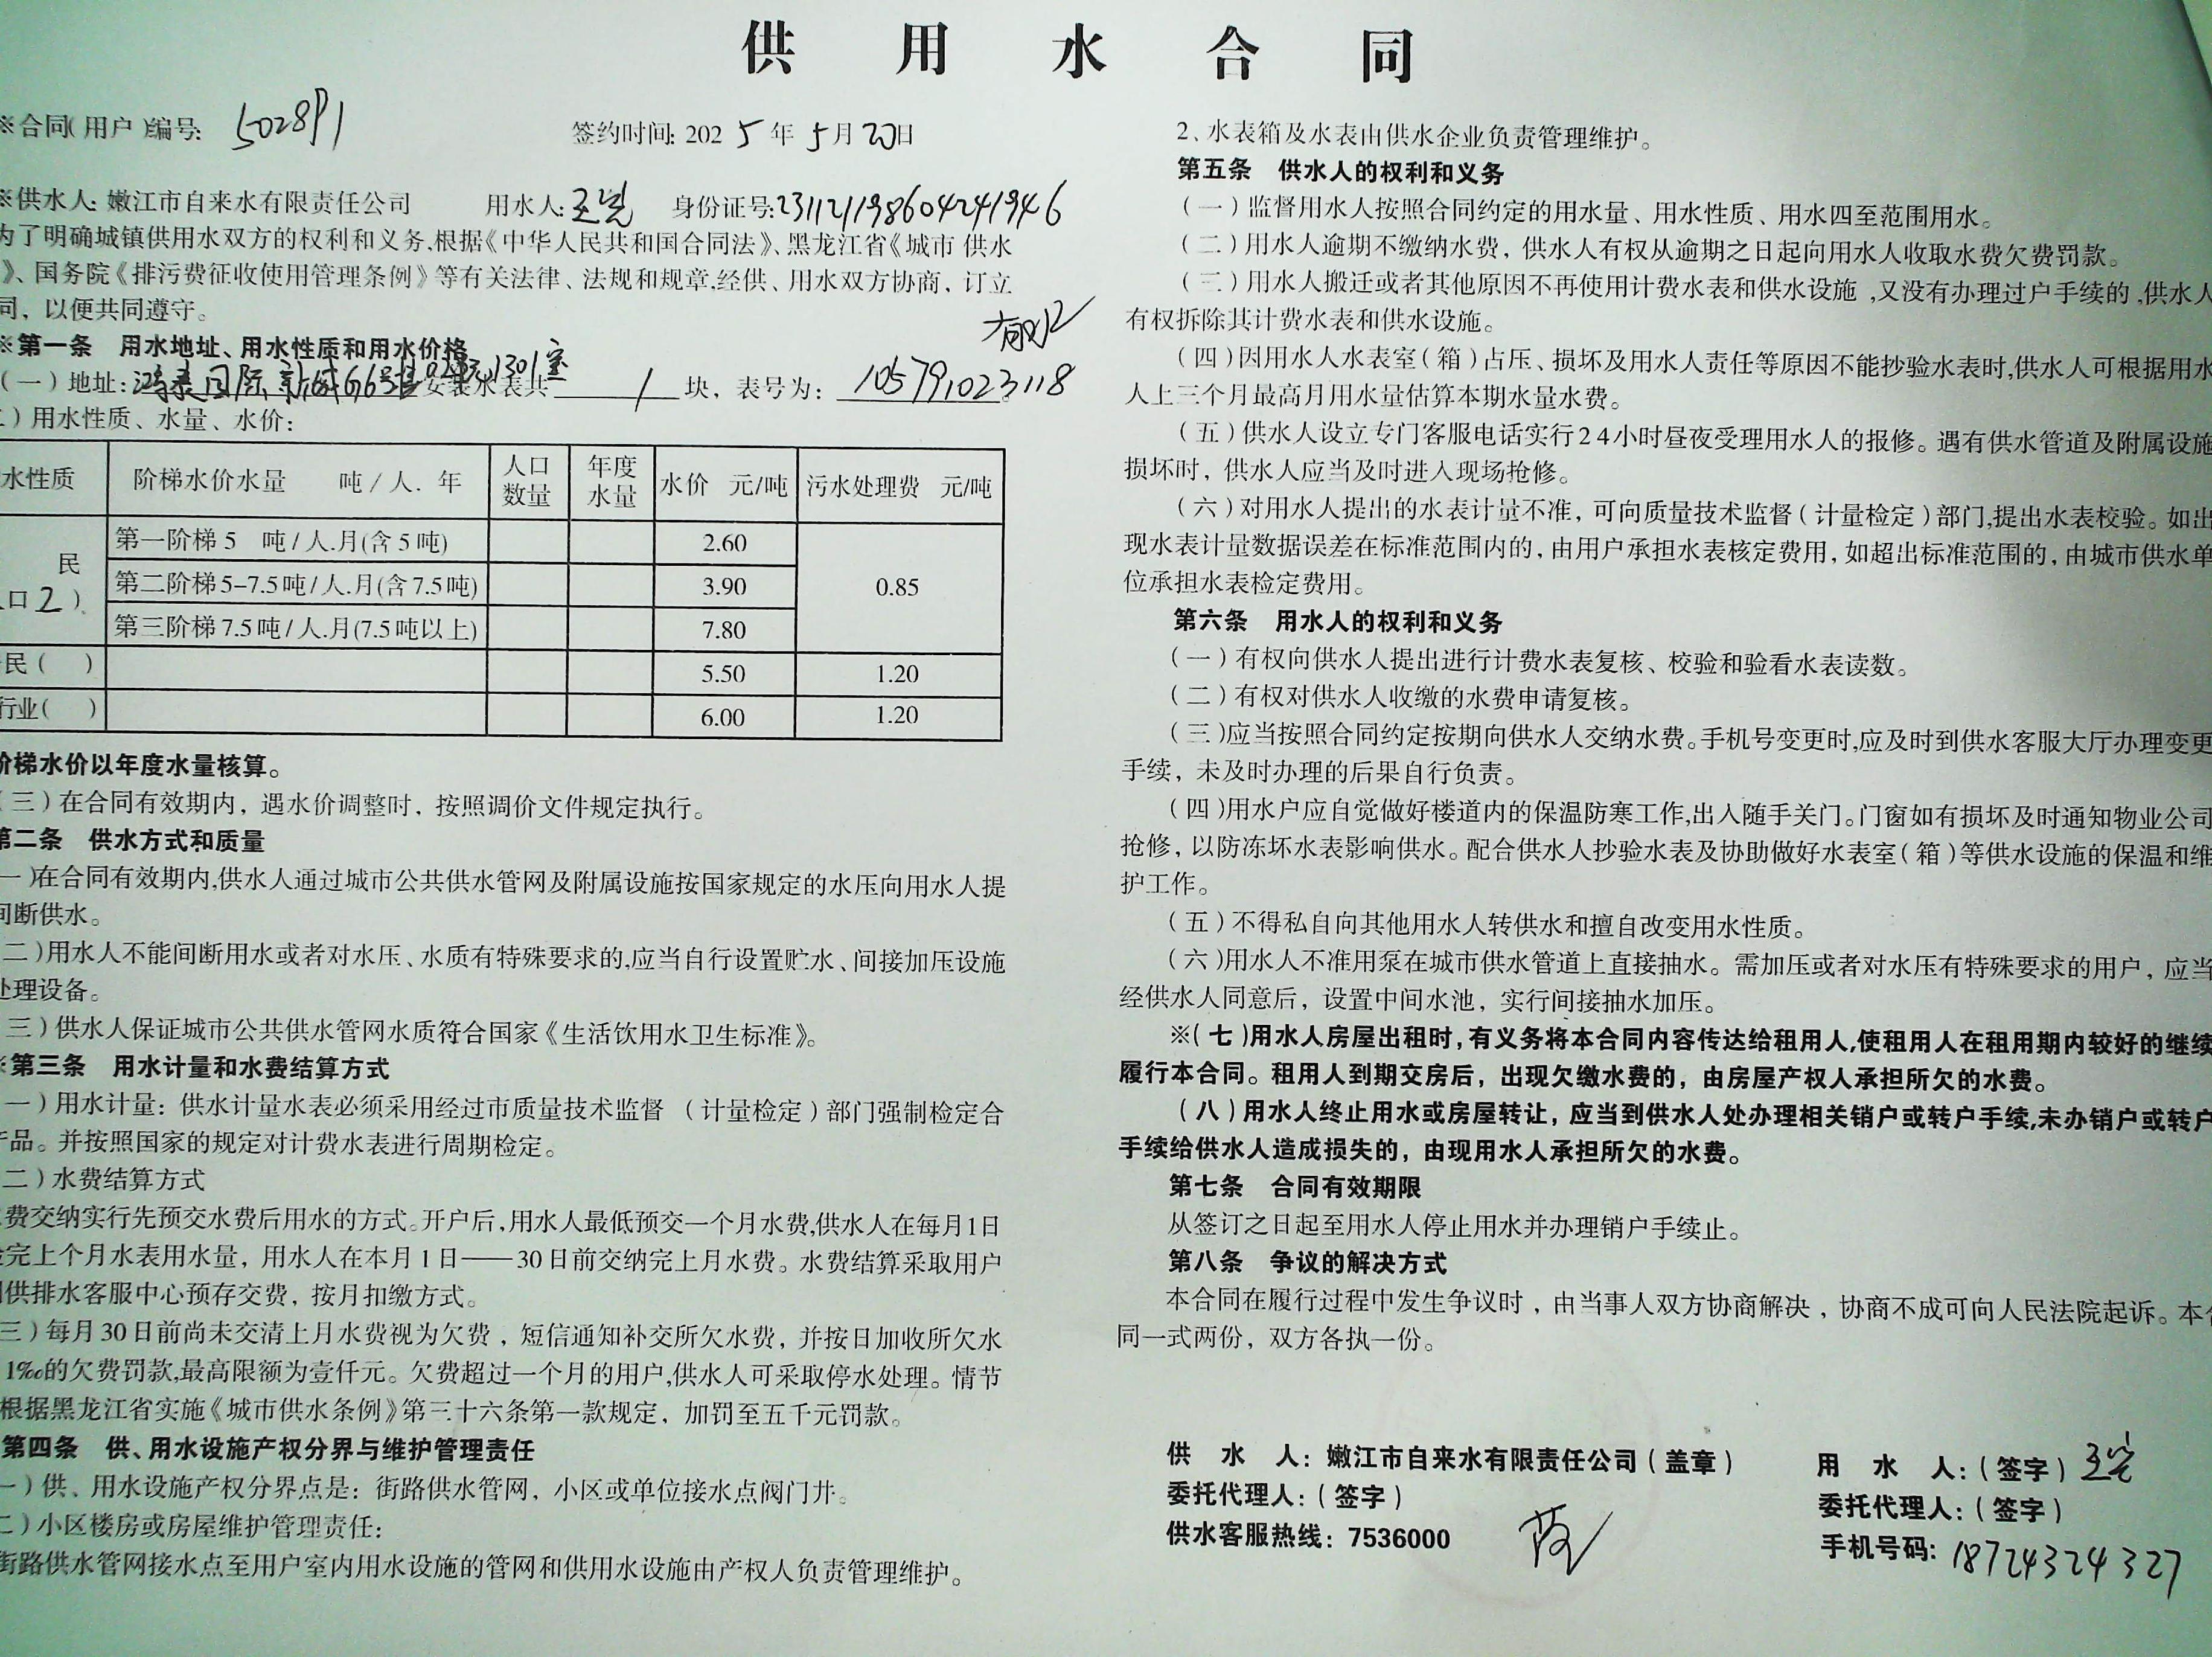 供用水合同
※合同(用户)编号: 502891
签约时间: 2025年5月20日
※供水人: 嫩江市自来水有限责任公司 用水人: 身份证号:231121198604241946
为了明确城镇供用水双方的权利和义务,根据《中华人民共和国合同法》、黑龙江省《城市 供水
》、国务院《排污费征收使用管理条例》等有关法律、法规和规章,经供、用水双方协商，订立
同，以便共同遵守。
※第一条 用水地址、用水性质和用水价格
(一)地址: 国际新城G6号 1301室 安装水表共 1 块，表号为: 105791023118
二)用水性质、水量、水价:
水性质 阶梯水价水量 吨/人.年 人口数量 年度水量 水价 元/吨 污水处理费 元/吨
民
口2)
第一阶梯 5 吨/人.月(含5吨) 2.60
第二阶梯 5-7.5吨/人.月(含7.5吨) 3.90 0.85
第三阶梯 7.5吨/人.月(7.5吨以上) 7.80
民( ) 5.50 1.20
行业( ) 6.00 1.20
阶梯水价以年度水量核算。
(三)在合同有效期内，遇水价调整时，按照调价文件规定执行。
第二条 供水方式和质量
一)在合同有效期内,供水人通过城市公共供水管网及附属设施按国家规定的水压向用水人提
间断供水。
二)用水人不能间断用水或者对水压、水质有特殊要求的,应当自行设置贮水、间接加压设施
处理设备。
三)供水人保证城市公共供水管网水质符合国家《生活饮用水卫生标准》。
※第三条 用水计量和水费结算方式
一)用水计量：供水计量水表必须采用经过市质量技术监督 (计量检定)部门强制检定合
产品。并按照国家的规定对计费水表进行周期检定。
二)水费结算方式
费交纳实行先预交水费后用水的方式。开户后,用水人最低预交一个月水费,供水人在每月1日
完上个月水表用水量，用水人在本月1日——30日前交纳完上月水费。水费结算采取用户
供排水客服中心预存交费，按月扣缴方式。
三)每月30日前尚未交清上月水费视为欠费，短信通知补交所欠水费，并按日加收所欠水
1‰的欠费罚款,最高限额为壹仟元。欠费超过一个月的用户,供水人可采取停水处理。情节
根据黑龙江省实施《城市供水条例》第三十六条第一款规定，加罚至五千元罚款。
第四条 供、用水设施产权分界与维护管理责任
一)供、用水设施产权分界点是：街路供水管网，小区或单位接水点阀门井。
二)小区楼房或房屋维护管理责任:
街路供水管网接水点至用户室内用水设施的管网和供用水设施由产权人负责管理维护。
2、水表箱及水表由供水企业负责管理维护。
第五条 供水人的权利和义务
(一)监督用水人按照合同约定的用水量、用水性质、用水四至范围用水。
(二)用水人逾期不缴纳水费，供水人有权从逾期之日起向用水人收取水费欠费罚款。
(三)用水人搬迁或者其他原因不再使用计费水表和供水设施,又没有办理过户手续的,供水人
有权拆除其计费水表和供水设施。
(四)因用水人水表室(箱)占压、损坏及用水人责任等原因不能抄验水表时,供水人可根据用水
人上三个月最高月用水量估算本期水量水费。
(五)供水人设立专门客服电话实行24小时昼夜受理用水人的报修。遇有供水管道及附属设施
损坏时，供水人应当及时进入现场抢修。
(六)对用水人提出的水表计量不准，可向质量技术监督(计量检定)部门,提出水表校验。如出
现水表计量数据误差在标准范围内的，由用户承担水表核定费用，如超出标准范围的，由城市供水单
位承担水表检定费用。
第六条 用水人的权利和义务
(一)有权向供水人提出进行计费水表复核、校验和验看水表读数。
(二)有权对供水人收缴的水费申请复核。
(三)应当按照合同约定按期向供水人交纳水费。手机号变更时,应及时到供水客服大厅办理变更
手续，未及时办理的后果自行负责。
(四)用水户应自觉做好楼道内的保温防寒工作,出入随手关门。门窗如有损坏及时通知物业公司
抢修，以防冻坏水表影响供水。配合供水人抄验水表及协助做好水表室(箱)等供水设施的保温和维
护工作。
(五)不得私自向其他用水人转供水和擅自改变用水性质。
(六)用水人不准用泵在城市供水管道上直接抽水。需加压或者对水压有特殊要求的用户，应当
经供水人同意后，设置中间水池，实行间接抽水加压。
※(七)用水人房屋出租时，有义务将本合同内容传达给租用人,使租用人在租用期内较好的继续
履行本合同。租用人到期交房后，出现欠缴水费的，由房屋产权人承担所欠的水费。
(八)用水人终止用水或房屋转让，应当到供水人处办理相关销户或转户手续,未办销户或转户
手续给供水人造成损失的，由现用水人承担所欠的水费。
第七条 合同有效期限
从签订之日起至用水人停止用水并办理销户手续止。
第八条 争议的解决方式
本合同在履行过程中发生争议时，由当事人双方协商解决，协商不成可向人民法院起诉。本合
同一式两份，双方各执一份。
供 水 人：嫩江市自来水有限责任公司(盖章)
委托代理人:(签字)
供水客服热线：7536000
用 水 人:(签字)
委托代理人:(签字)
手机号码: 18724324327